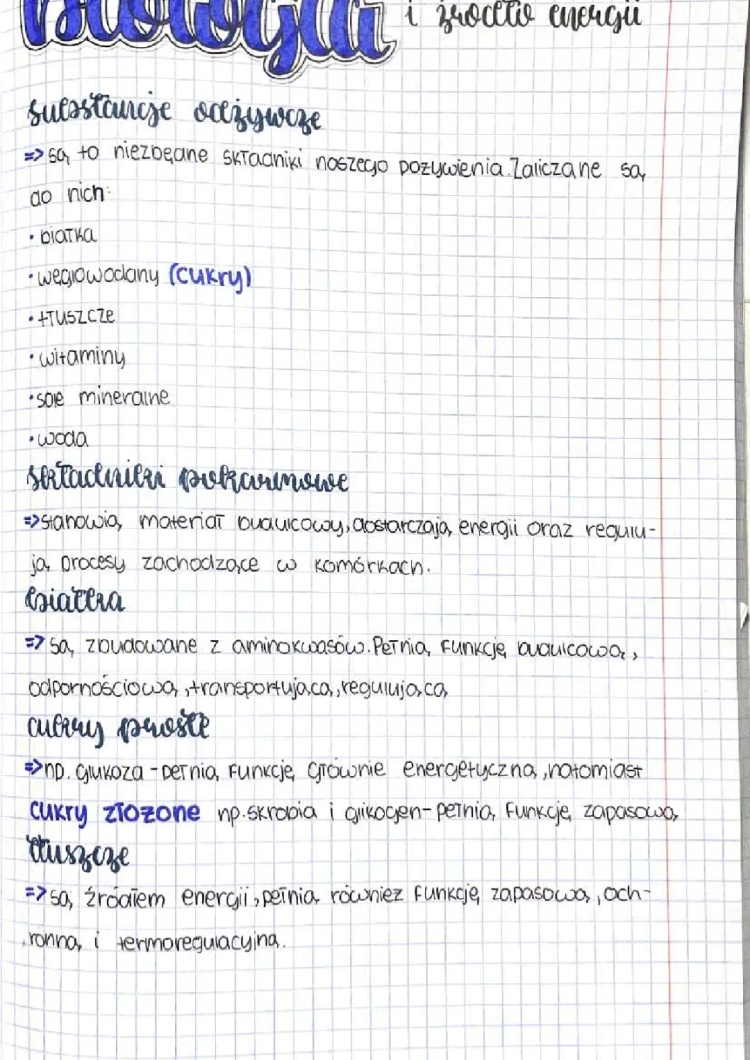 Biologia i źródło energii
substancje odżywcze
=> są to niezbędne składniki naszego pożywienia. Zaliczane są
do nich:
• białka
• węglowodany (cukry)
• tłuszcze
• witaminy
• sole mineralne
• woda
składniki pokarmowe
=> stanowią materiał budulcowy, dostarczają energii oraz regulu-
ją procesy zachodzące w komórkach.
białka
=> są zbudowane z aminokwasów. Pełnią funkcję budulcową,
odpornościową, transportującą, regulującą
cukry proste
=> np. glukoza - pełnią funkcję głównie energetyczną, natomiast
cukry złożone np. skrobia i glikogen - pełnią funkcję zapasową,
tłuszcze
=> są źródłem energii, pełnią również funkcję zapasową, och-
ronną i termoregulacyjną.